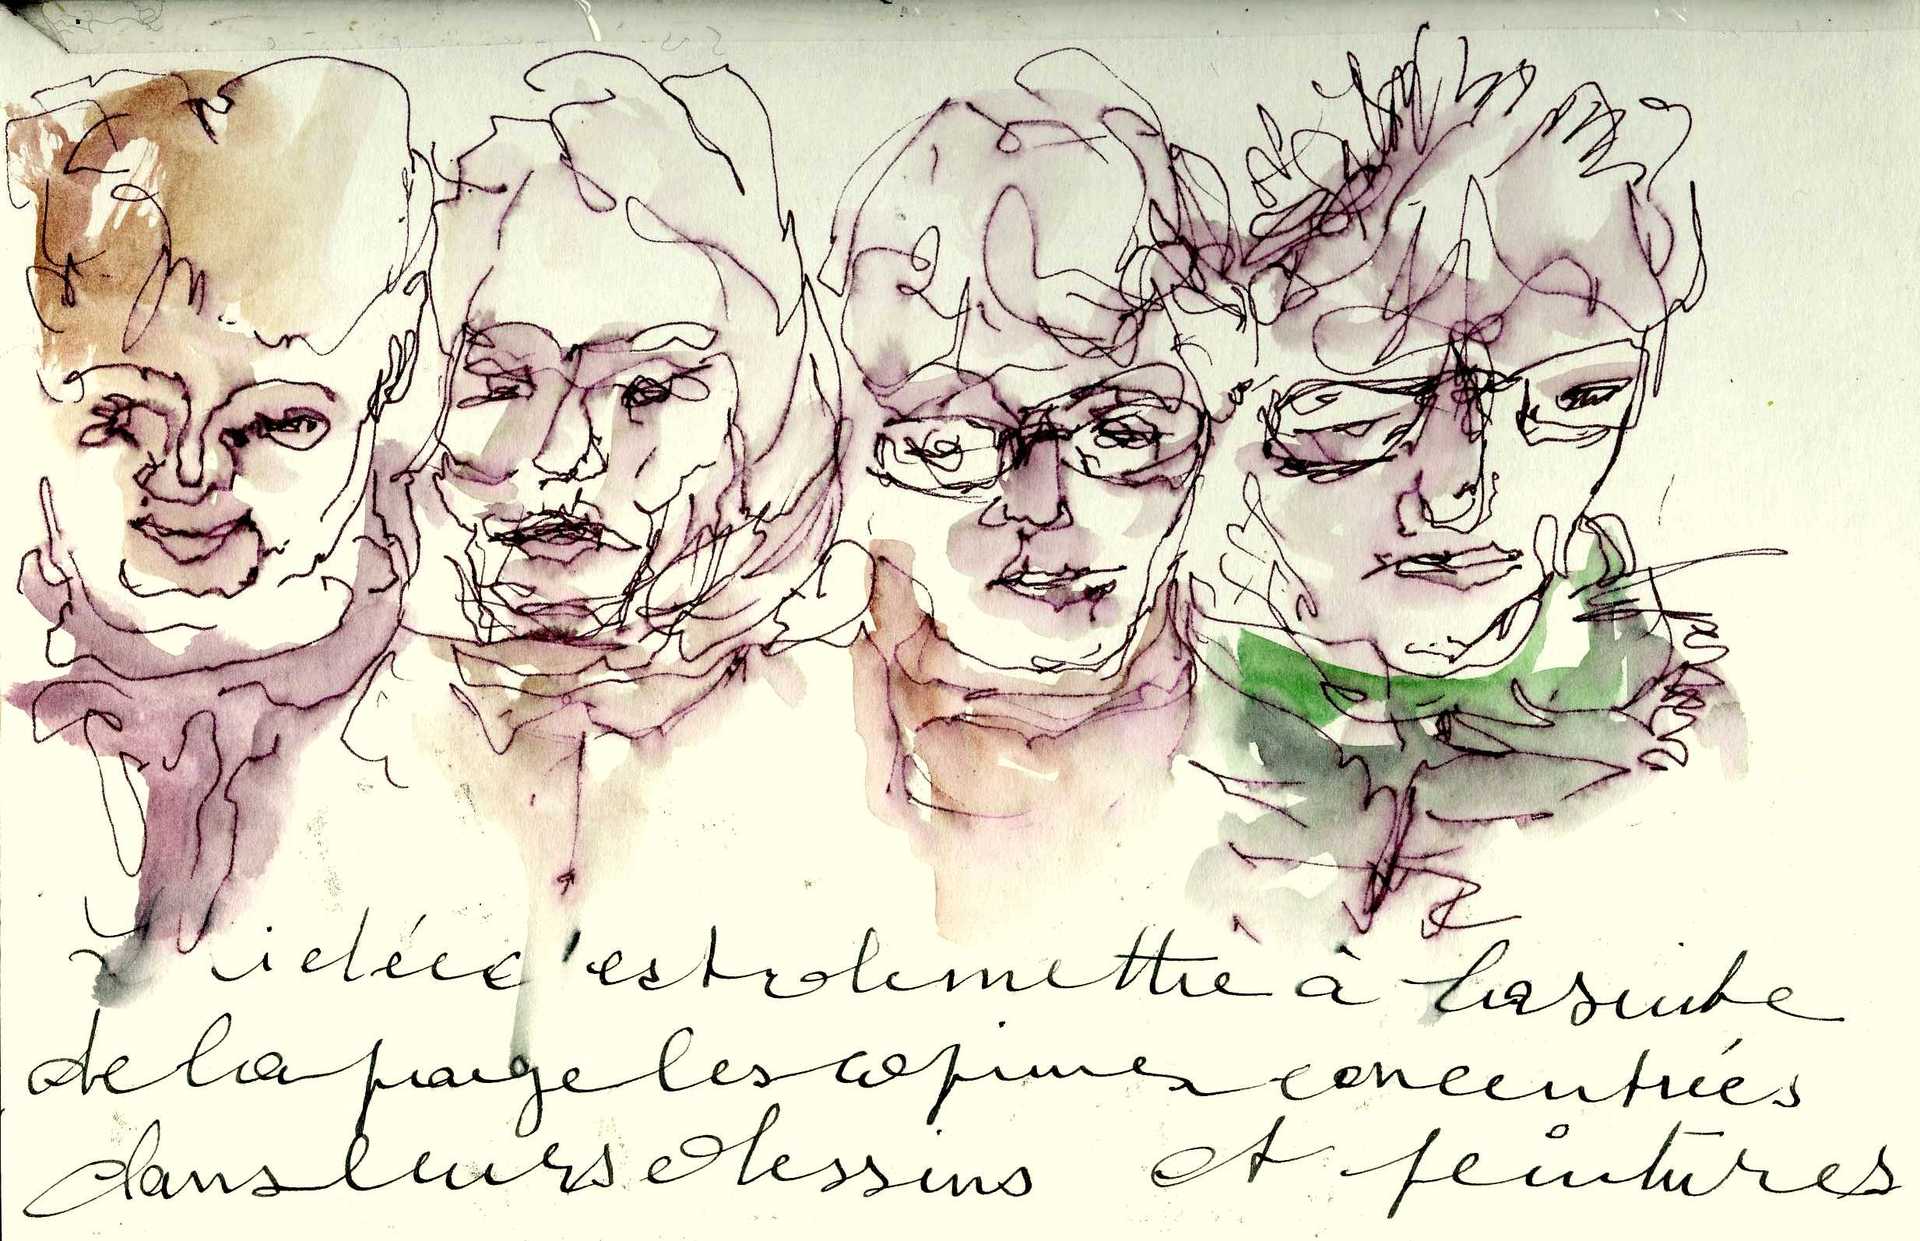 L'idée c'est de mettre à la suite
de la page les copines concentrées
dans leurs dessins et peintures